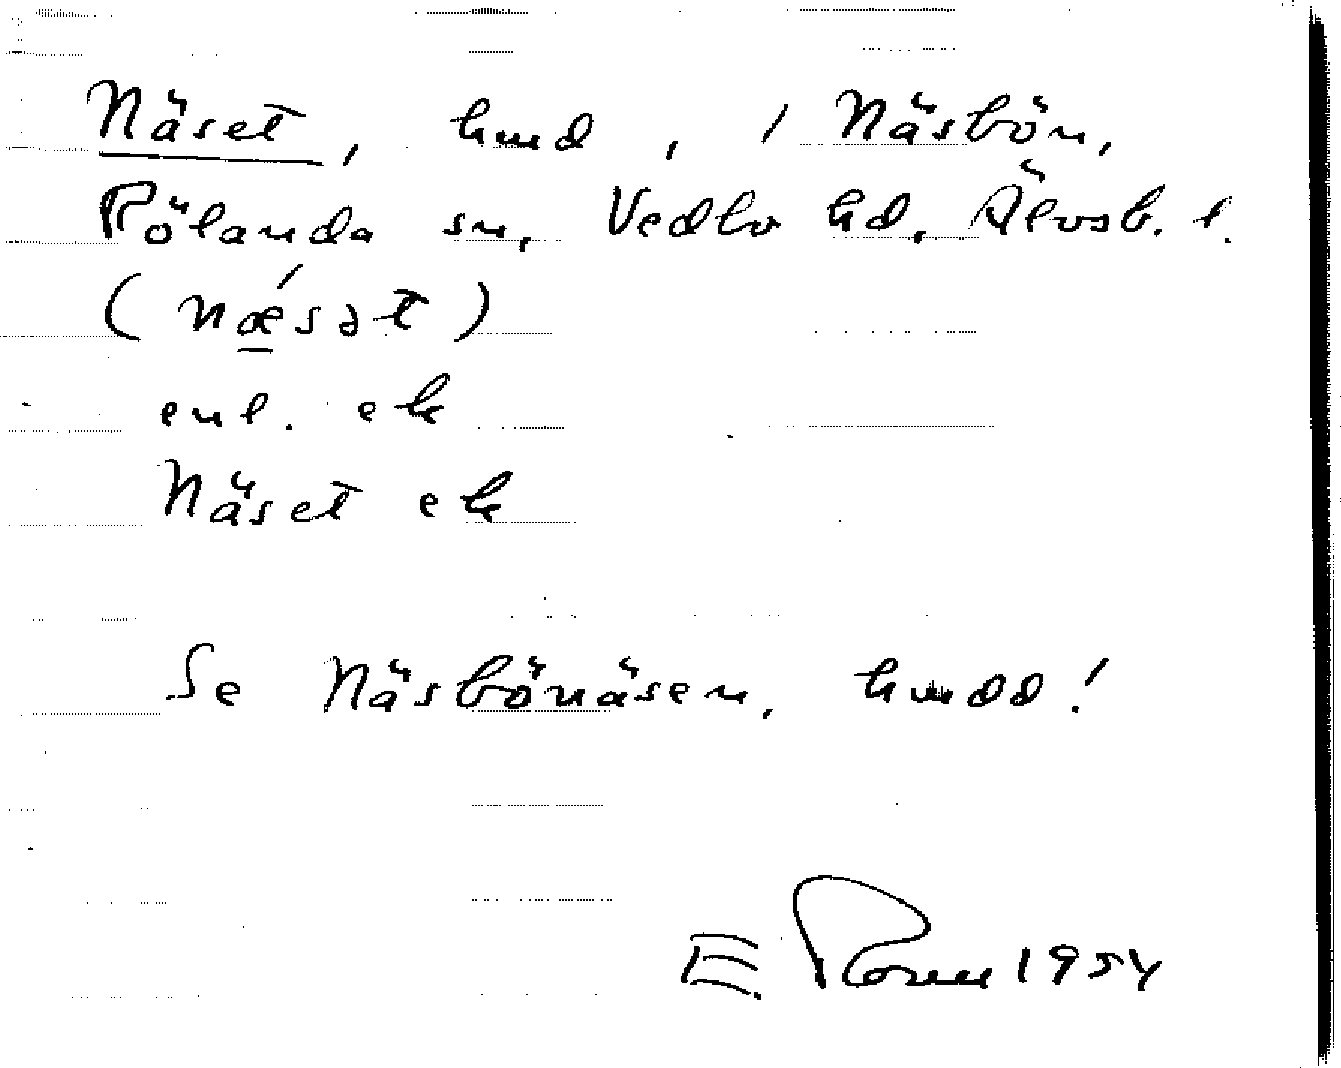 Näset, hmd, i Näsbön,
Rölanda sn, Vedbo hd, Älvsb. l.
(nǽ̲sət)
enl. ek
Näset ek
Se Näsbönäsen, hmdd!
E. Rosell 1954